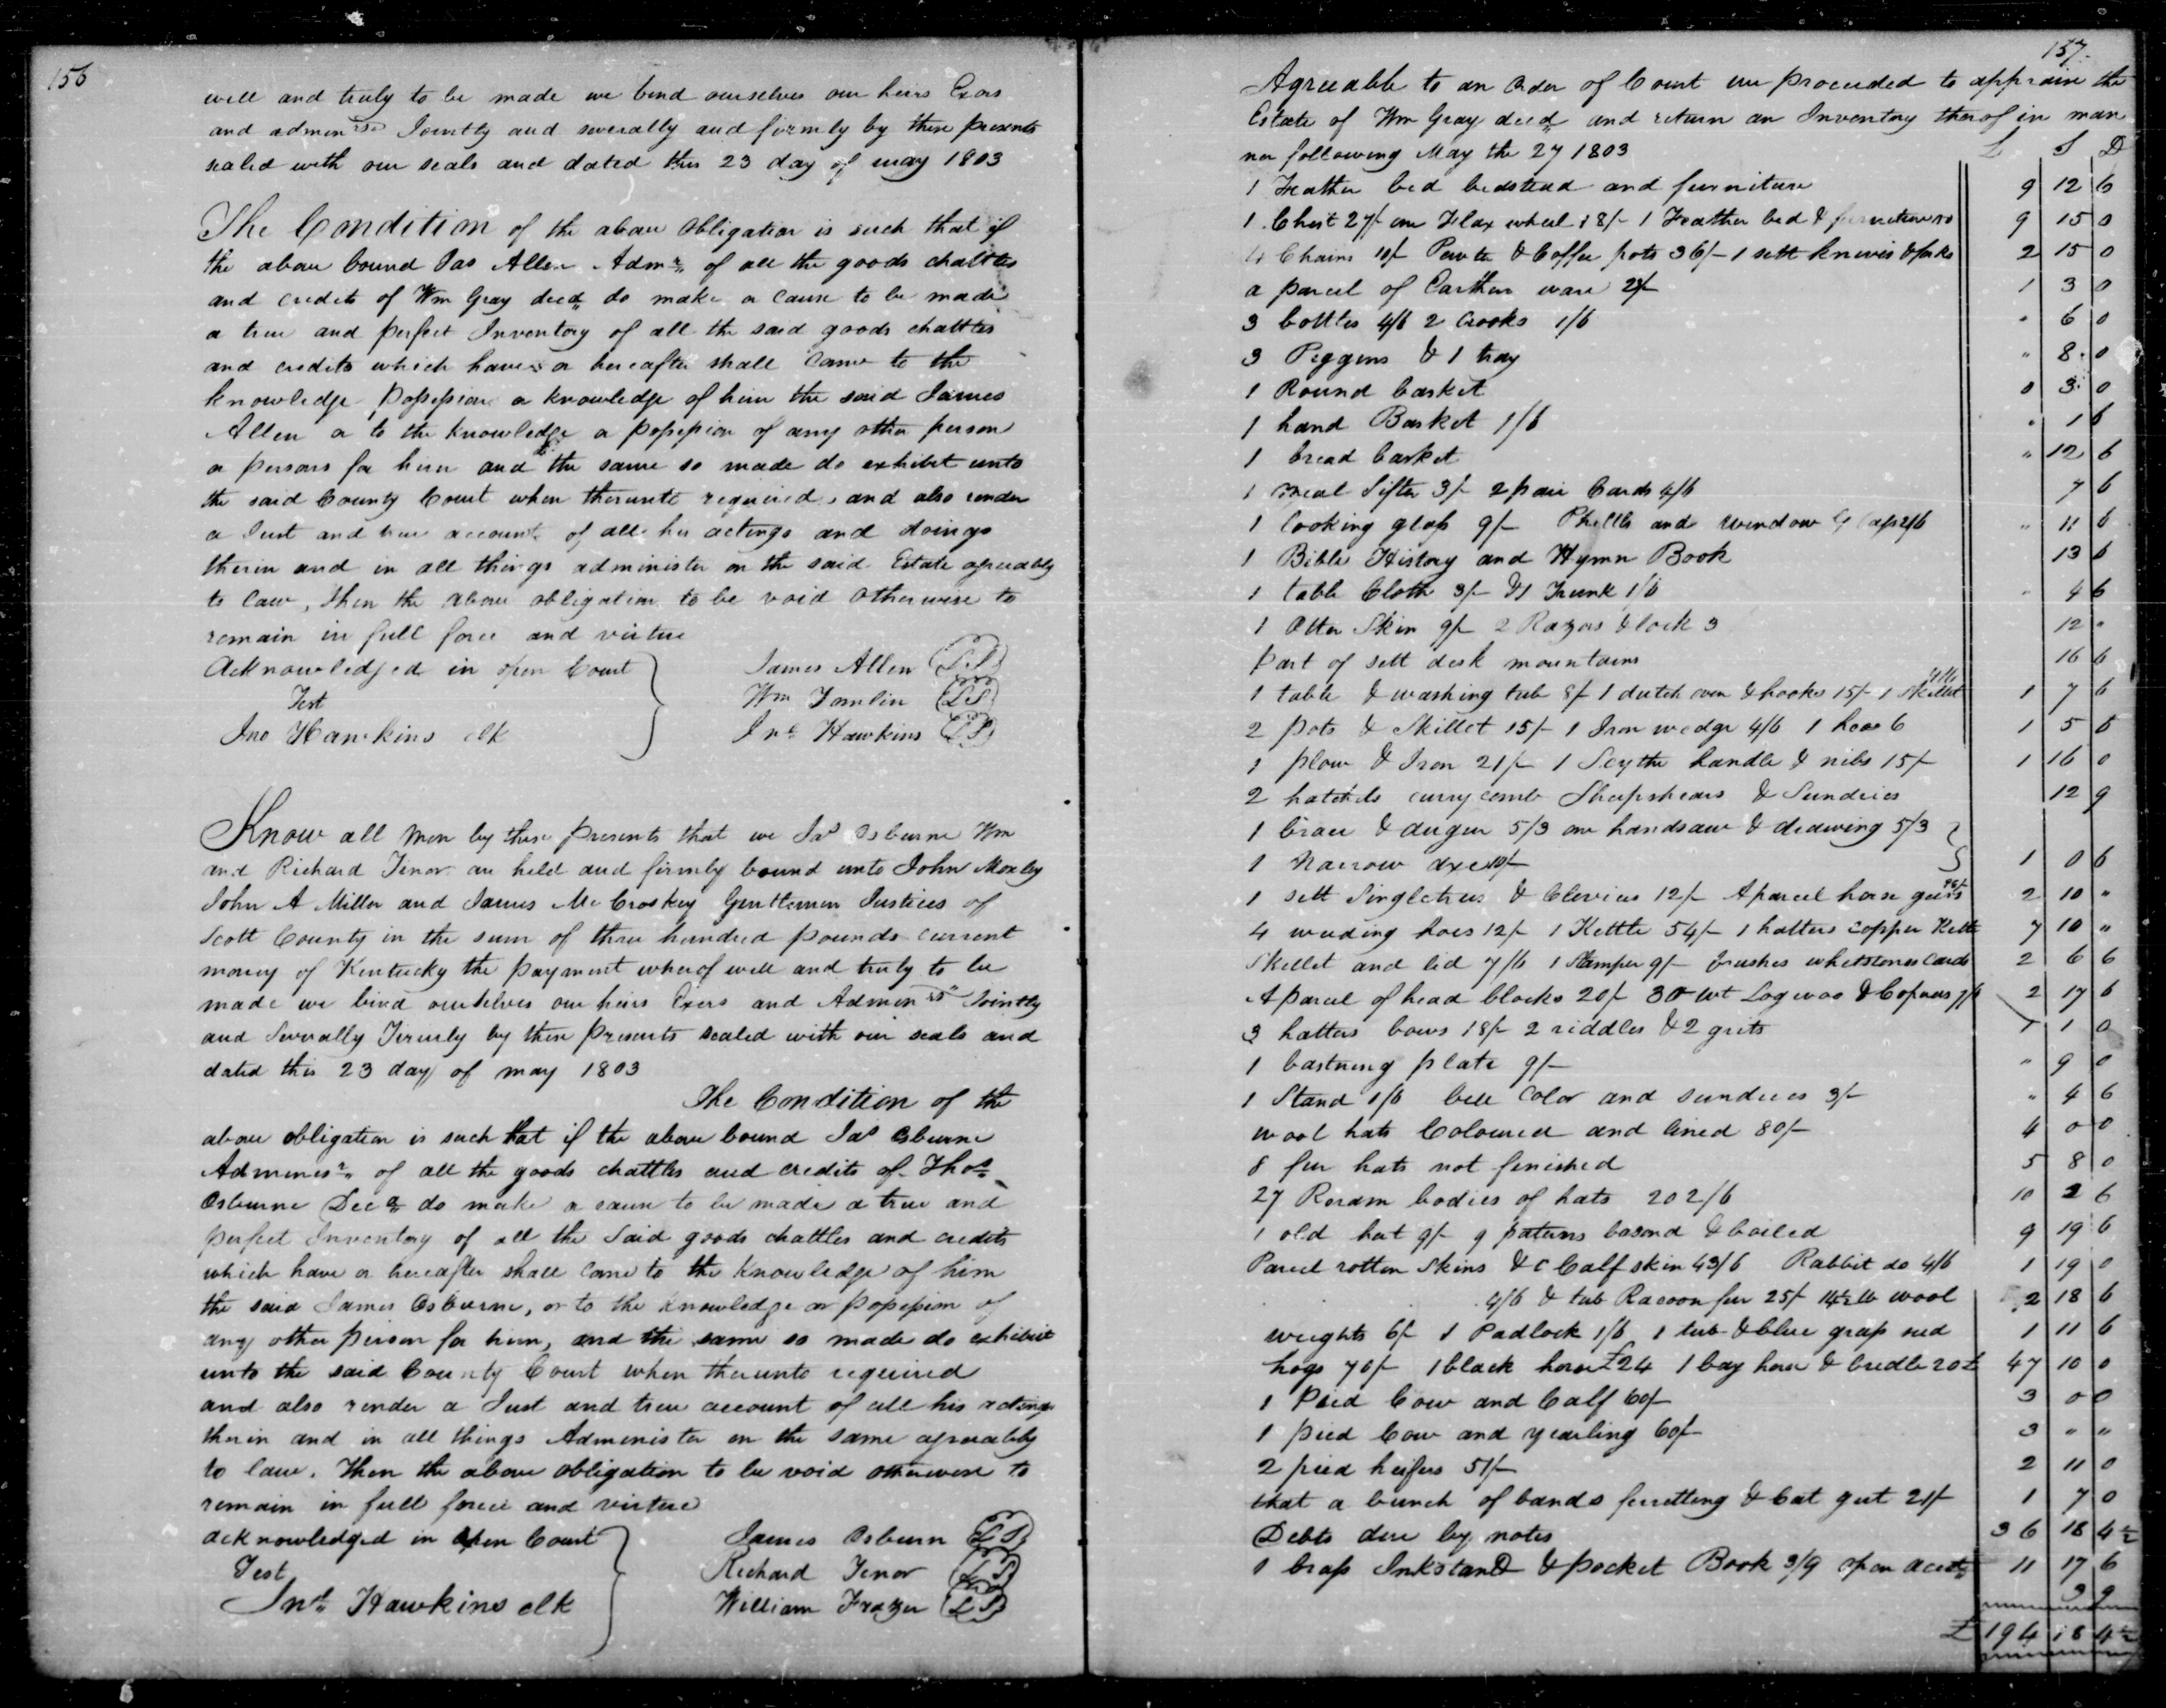 156
well and truly to be made we bend ourselves our heirs Exors
and adminrs Jointly and severally and firmly by these presents
sealed with our seals and dated this 23 day of may 1803
The Condition of the above obligation is such that if
the above bound Jas Allen Admr of all the goods chattles
and credits of Wm Gray decd do make or cause to be made
a true and perfect Inventory of all the said goods chattles
and credits which have or hereafter shall come to the
knowledge possession or knowledge of him the said James
Allen or to the knowledge or possession of any other person
or persons for him and the same so made do exhibit unto
the said County Court when therunto required, and also render
a Just and true account of all his actings and doings
therin and in all things administer on the said Estate agreeably
to law, then the above obligation to be void otherwise to
remain in full force and virtue
Acknowledged in open Court
James Allen (LS)
Test
Wm Tomlin (LS)
Jno Hawkins clk
Jno Hawkins (LS)
Know all Men by these presents that we Jas Osburne Wm
and Richard Tenor are held and firmly bound unto John Mosley
John A Miller and James McCroskey Gentlemen Justices of
Scott County in the sum of three hundred pounds current
money of Kentucky the payment wherof well and truly to be
made we bind ourselves our heirs Exers and Adminrs Jointly
and Severally Firmly by these presents sealed with our seals and
dated this 23 day of may 1803
The Condition of the
above obligation is such that if the above bound Jas Osburne
Adminisr of all the goods chattles and credits of Thos
Osburne Decd do make or cause to be made a true and
perfect Inventory of all the Said goods chattles and credits
which have or hereafter shall come to the Knowledge of him
the said James Osburne, or to the knowledge or possession of
any other person for him, and the same so made do exhibit
unto the said County Court when therunto required
and also render a Just and true account of all his actings
therin and in all things Administer on the same agreeably
to law. Then the above obligation to be void otherwise to
remain in full force and virtue
acknowledged in open Court
James Osburn (LS)
Test
Richard Tenor (LS)
Jno Hawkins clk
William Frazer (LS)
157
Agreeable to an order of Court we proceeded to appraise the
Estate of Wm Gray decd and return an Inventory therof in man
ner following May the 27 1803 L S D
1 Feather bed bedstead and furniture 9 12 6
1 Chest 27/- one Flax wheel 18/- 1 Feather bed & furniture 9 15 0
4 Chairs 10/- Pewter & Coffee pots 36/- 1 sett knives & forks 2 15 0
a parcel of Earthen ware 1 3 0
3 bottles 4/6 2 Crooks 1/6 " 6 0
3 Piggins & 1 tray " 8 0
1 Round basket 0 3 0
1 hand Basket 1/6 " 1 6
1 bread basket " 12 6
1 meal Sifter 3/- 2 pair Cards 4/6 7 6
1 looking glass 9/- and window glass 2/6 " 11 6
1 Bible History and Hymn Book 13 6
1 table Cloth 3/- & 1 Trunk 1/6 " 4 6
1 Otter Skin 9/- 2 Razors & lock 3 12 "
part of sett desk mountains 16 6
1 table & washing tub 8/- 1 dutch oven & hooks 15/- 1 Skillet 1 7 6
2 pots & Skillet 15/- 1 Iron wedge 4/6 1 hoe 6 1 5 6
1 plow & Iron 21/- 1 Scythe handle & nibs 15/- 1 16 0
2 hatchets currycomb Sheepshears & Sundries 12 9
1 brace & auger 5/3 one handsaw & drawing 5/3
1 Narrow axe 10/- 1 0 6
1 sett Singletrees & Clevices 12/- A parcel horse geers 2 10 "
4 weeding hoes 12/- 1 Kettle 54/- 1 hatters copper Kettle 7 10 "
Skillet and lid 7/6 1 Stamper 9/- brushes whetstones Cards 2 6 6
A parcel of head blocks 20/- 30 wt Logwoo & Coperas 2 17 6
3 hatters bows 18/- 2 riddles & 2 grits 1 1 0
1 bastning plate 9/- " 9 0
1 Stand 1/6 blue Color and sundries 3/- " 4 6
wool hats Coloured and lined 80/- 4 0 0
8 fur hats not finished 5 8 0
27 Roram bodies of hats 202/6 10 2 6
1 old hat 9/- 9 paterns basond & boiled 9 19 6
Parcel rotten Skins & Calf skin 43/6 Rabbit do 4/6 1 19 0
4/6 & tub Racoon fur 25/- 14½ lb wool 2 18 6
weights 6/- 1 Padlock 1/6 1 tub & blue grass seed 1 11 6
hogs 70/- 1 black horse £24 1 bay horse & bridle 20£ 47 10 0
1 Pied Cow and Calf 60/- 3 0 0
1 pied Cow and yearling 60/- 3 " "
2 pied heifers 51/- 2 11 0
that a bunch of bands ferretting & Cat gut 21/- 1 7 0
Debts due by notes 36 18 4½
1 brass Inkstand & pocket Book 3/9 open acct 11 17 6
3 9
£ 194 18 4½